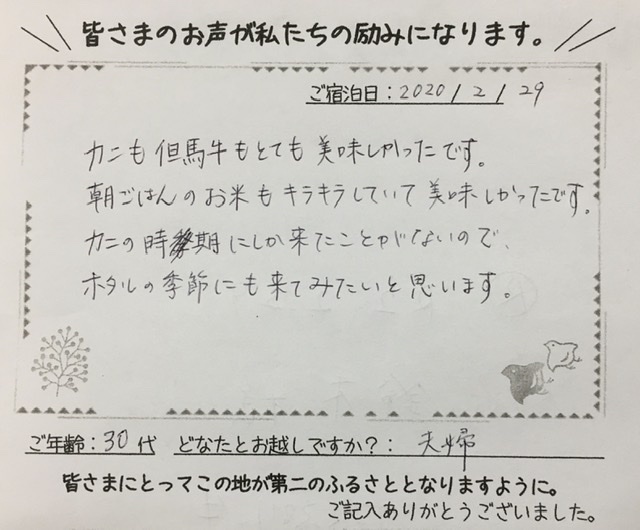 皆さまのお声が私たちの励みになります。
ご宿泊日：2020/2/29
カニも但馬牛もとても美味しかったです。
朝ごはんのお米もキラキラしていて美味しかったです。
カニの時期にしか来たことがないので、
ホタルの季節にも来てみたいと思います。
ご年齢：30代 どなたとお越しですか？：夫婦
皆さまにとってこの地が第二のふるさととなりますように。
ご記入ありがとうございました。